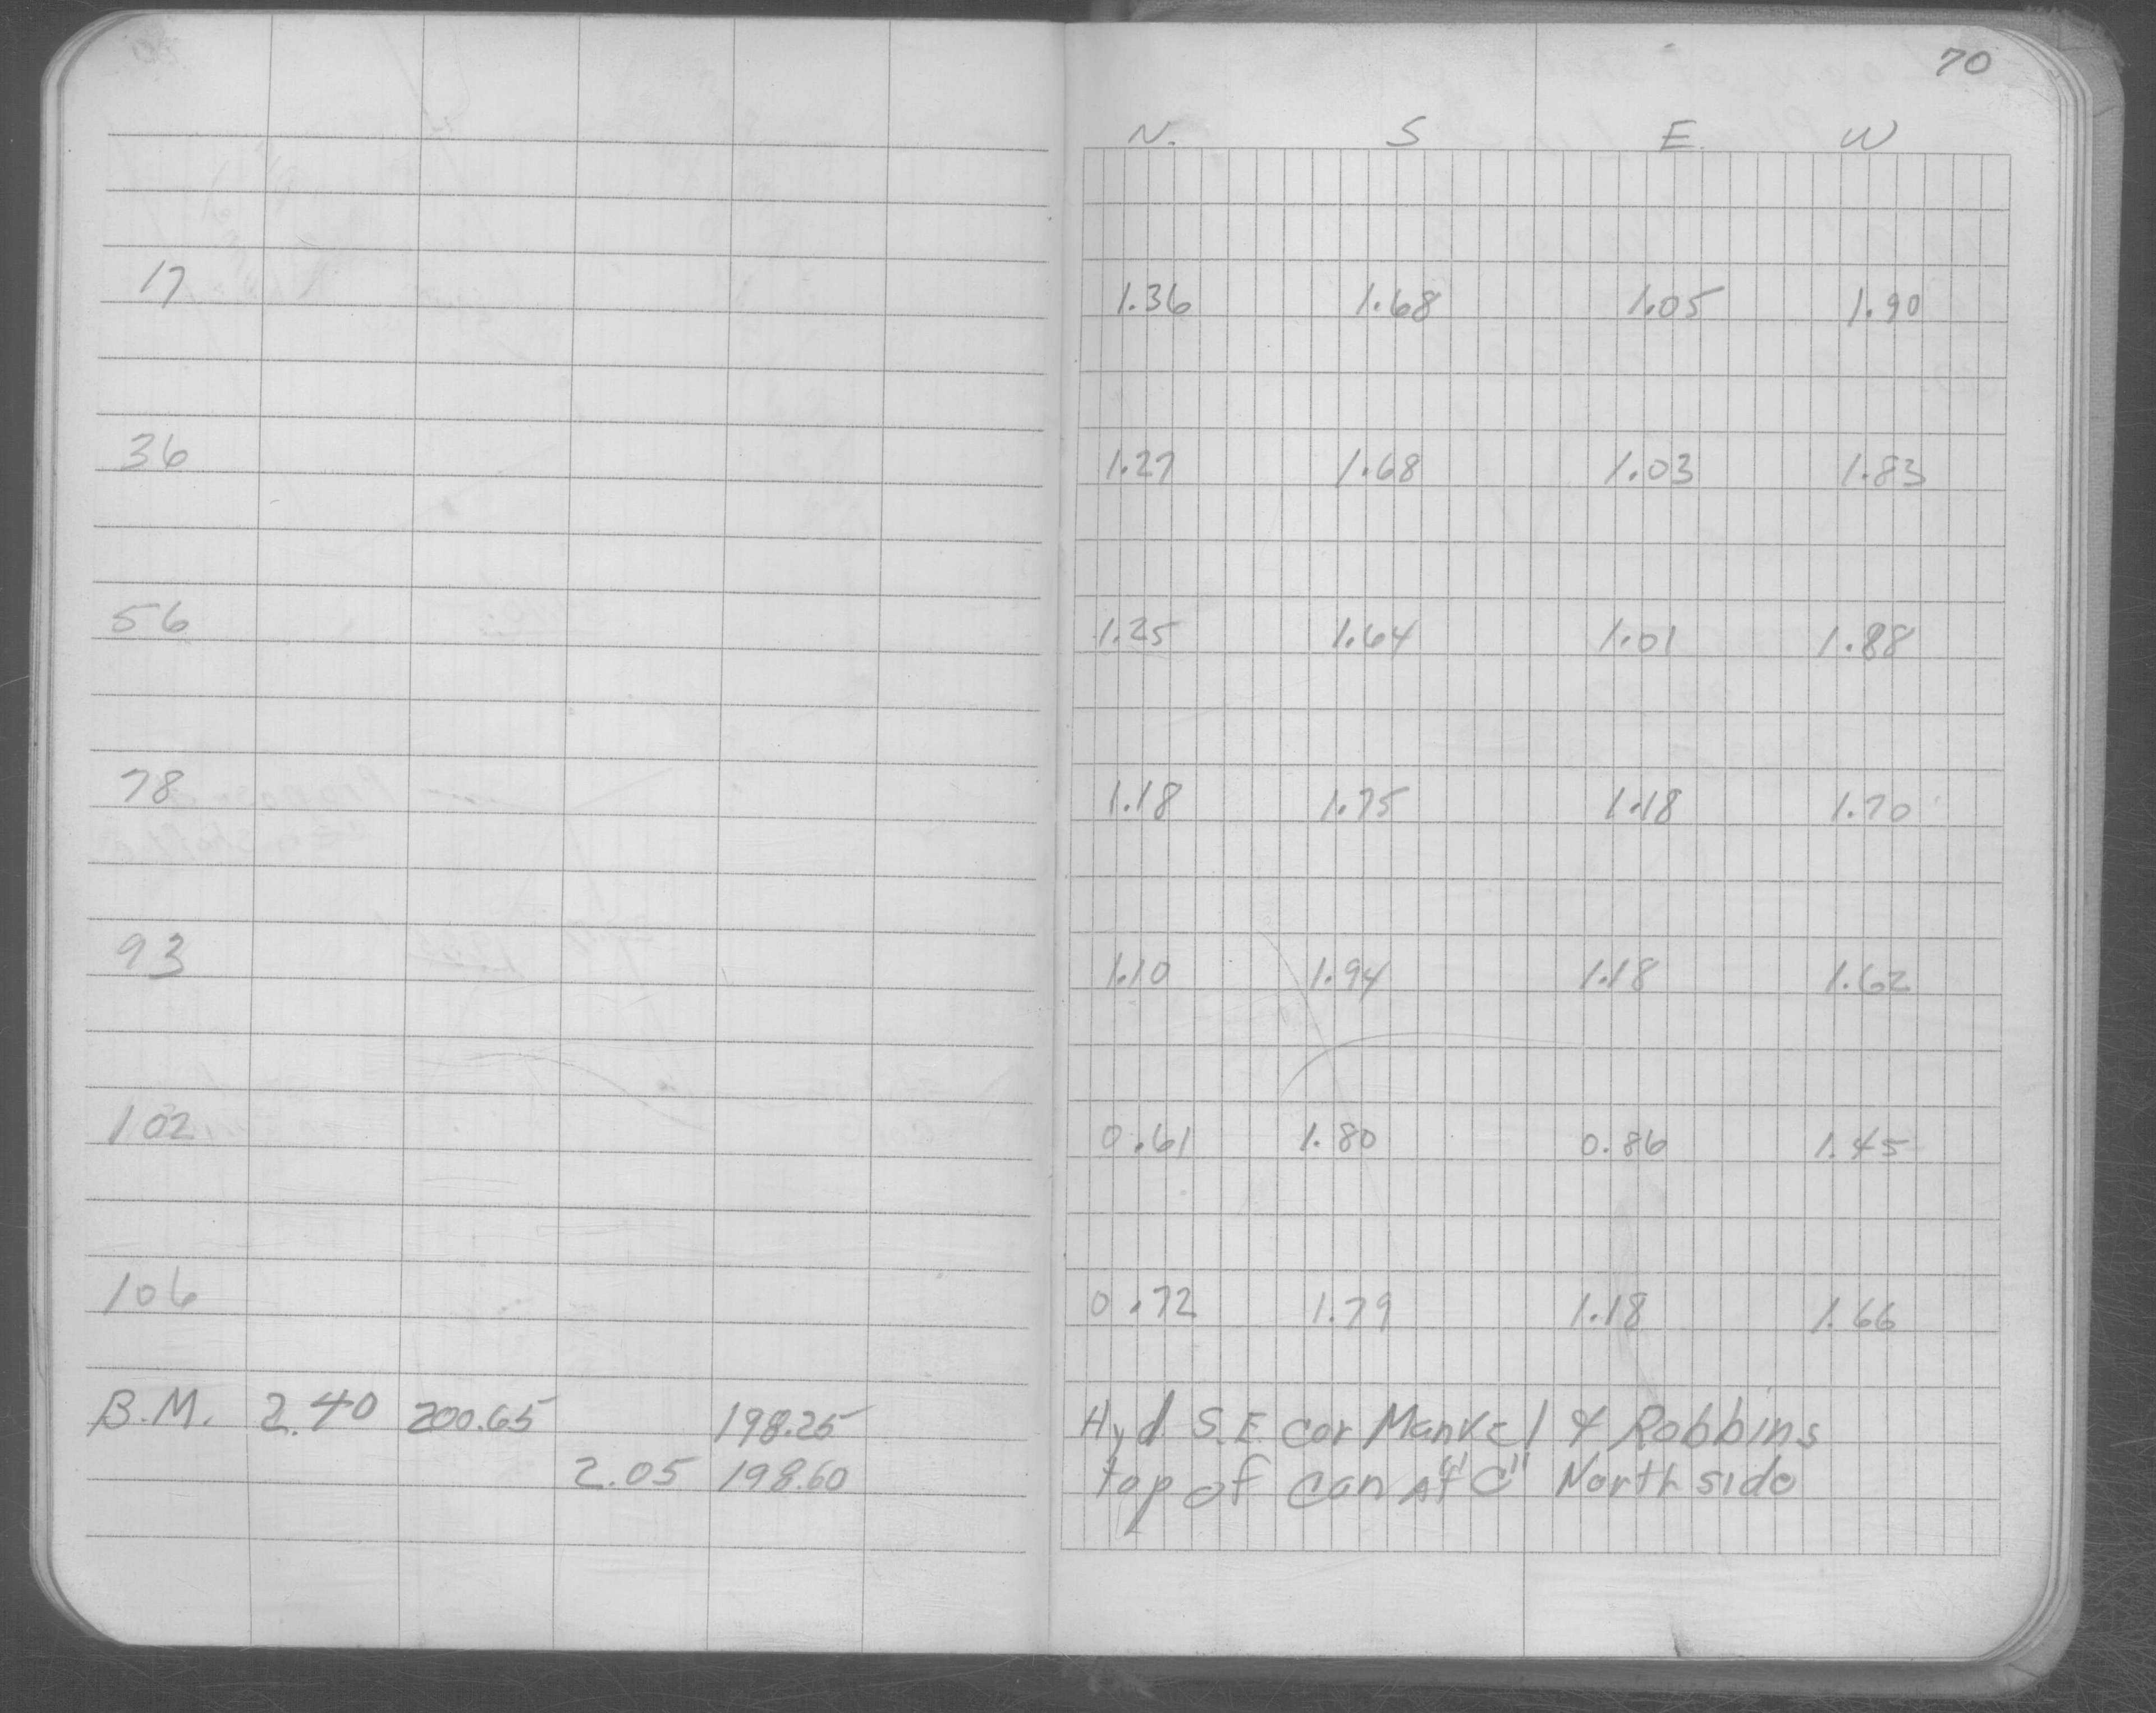 70
N. S E. W
17 1.36 1.68 1.05 1.90
36 1.27 1.68 1.03 1.83
56 1.25 1.64 1.01 1.88
78 1.18 1.75 1.18 1.70
93 1.10 1.94 1.18 1.62
102 0.61 1.80 0.86 1.45
106 0.72 1.79 1.18 1.66
B.M. 2.40 200.65 198.25 Hyd. S.E. cor Mankel & Robbins
2.05 198.60 top of can At "C" North side